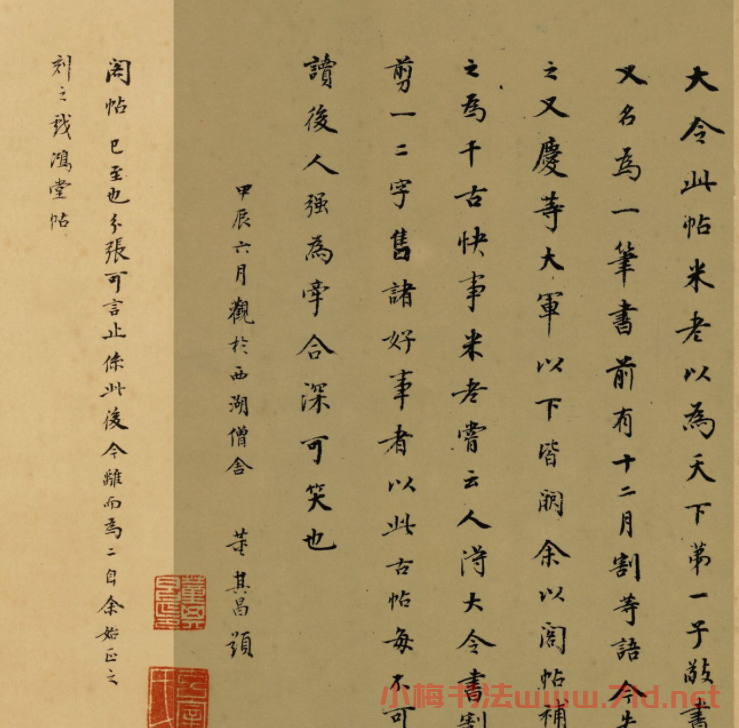 大令此帖米老以為天下第一子敬書
又名為一筆書前有十二月割等語今失
之又慶等大軍以下皆闕余以閣帖補
之為千古快事米老嘗云人得大令書割
剪一二字售諸好事者以此古帖每不可
讀後人強為牽合深可笑也
甲辰六月觀於西湖僧舍 董其昌題
閣帖已至也分張可言止係此後今離而為二自余始正之
刻之戲鴻堂帖
小梅书法www.71d.net